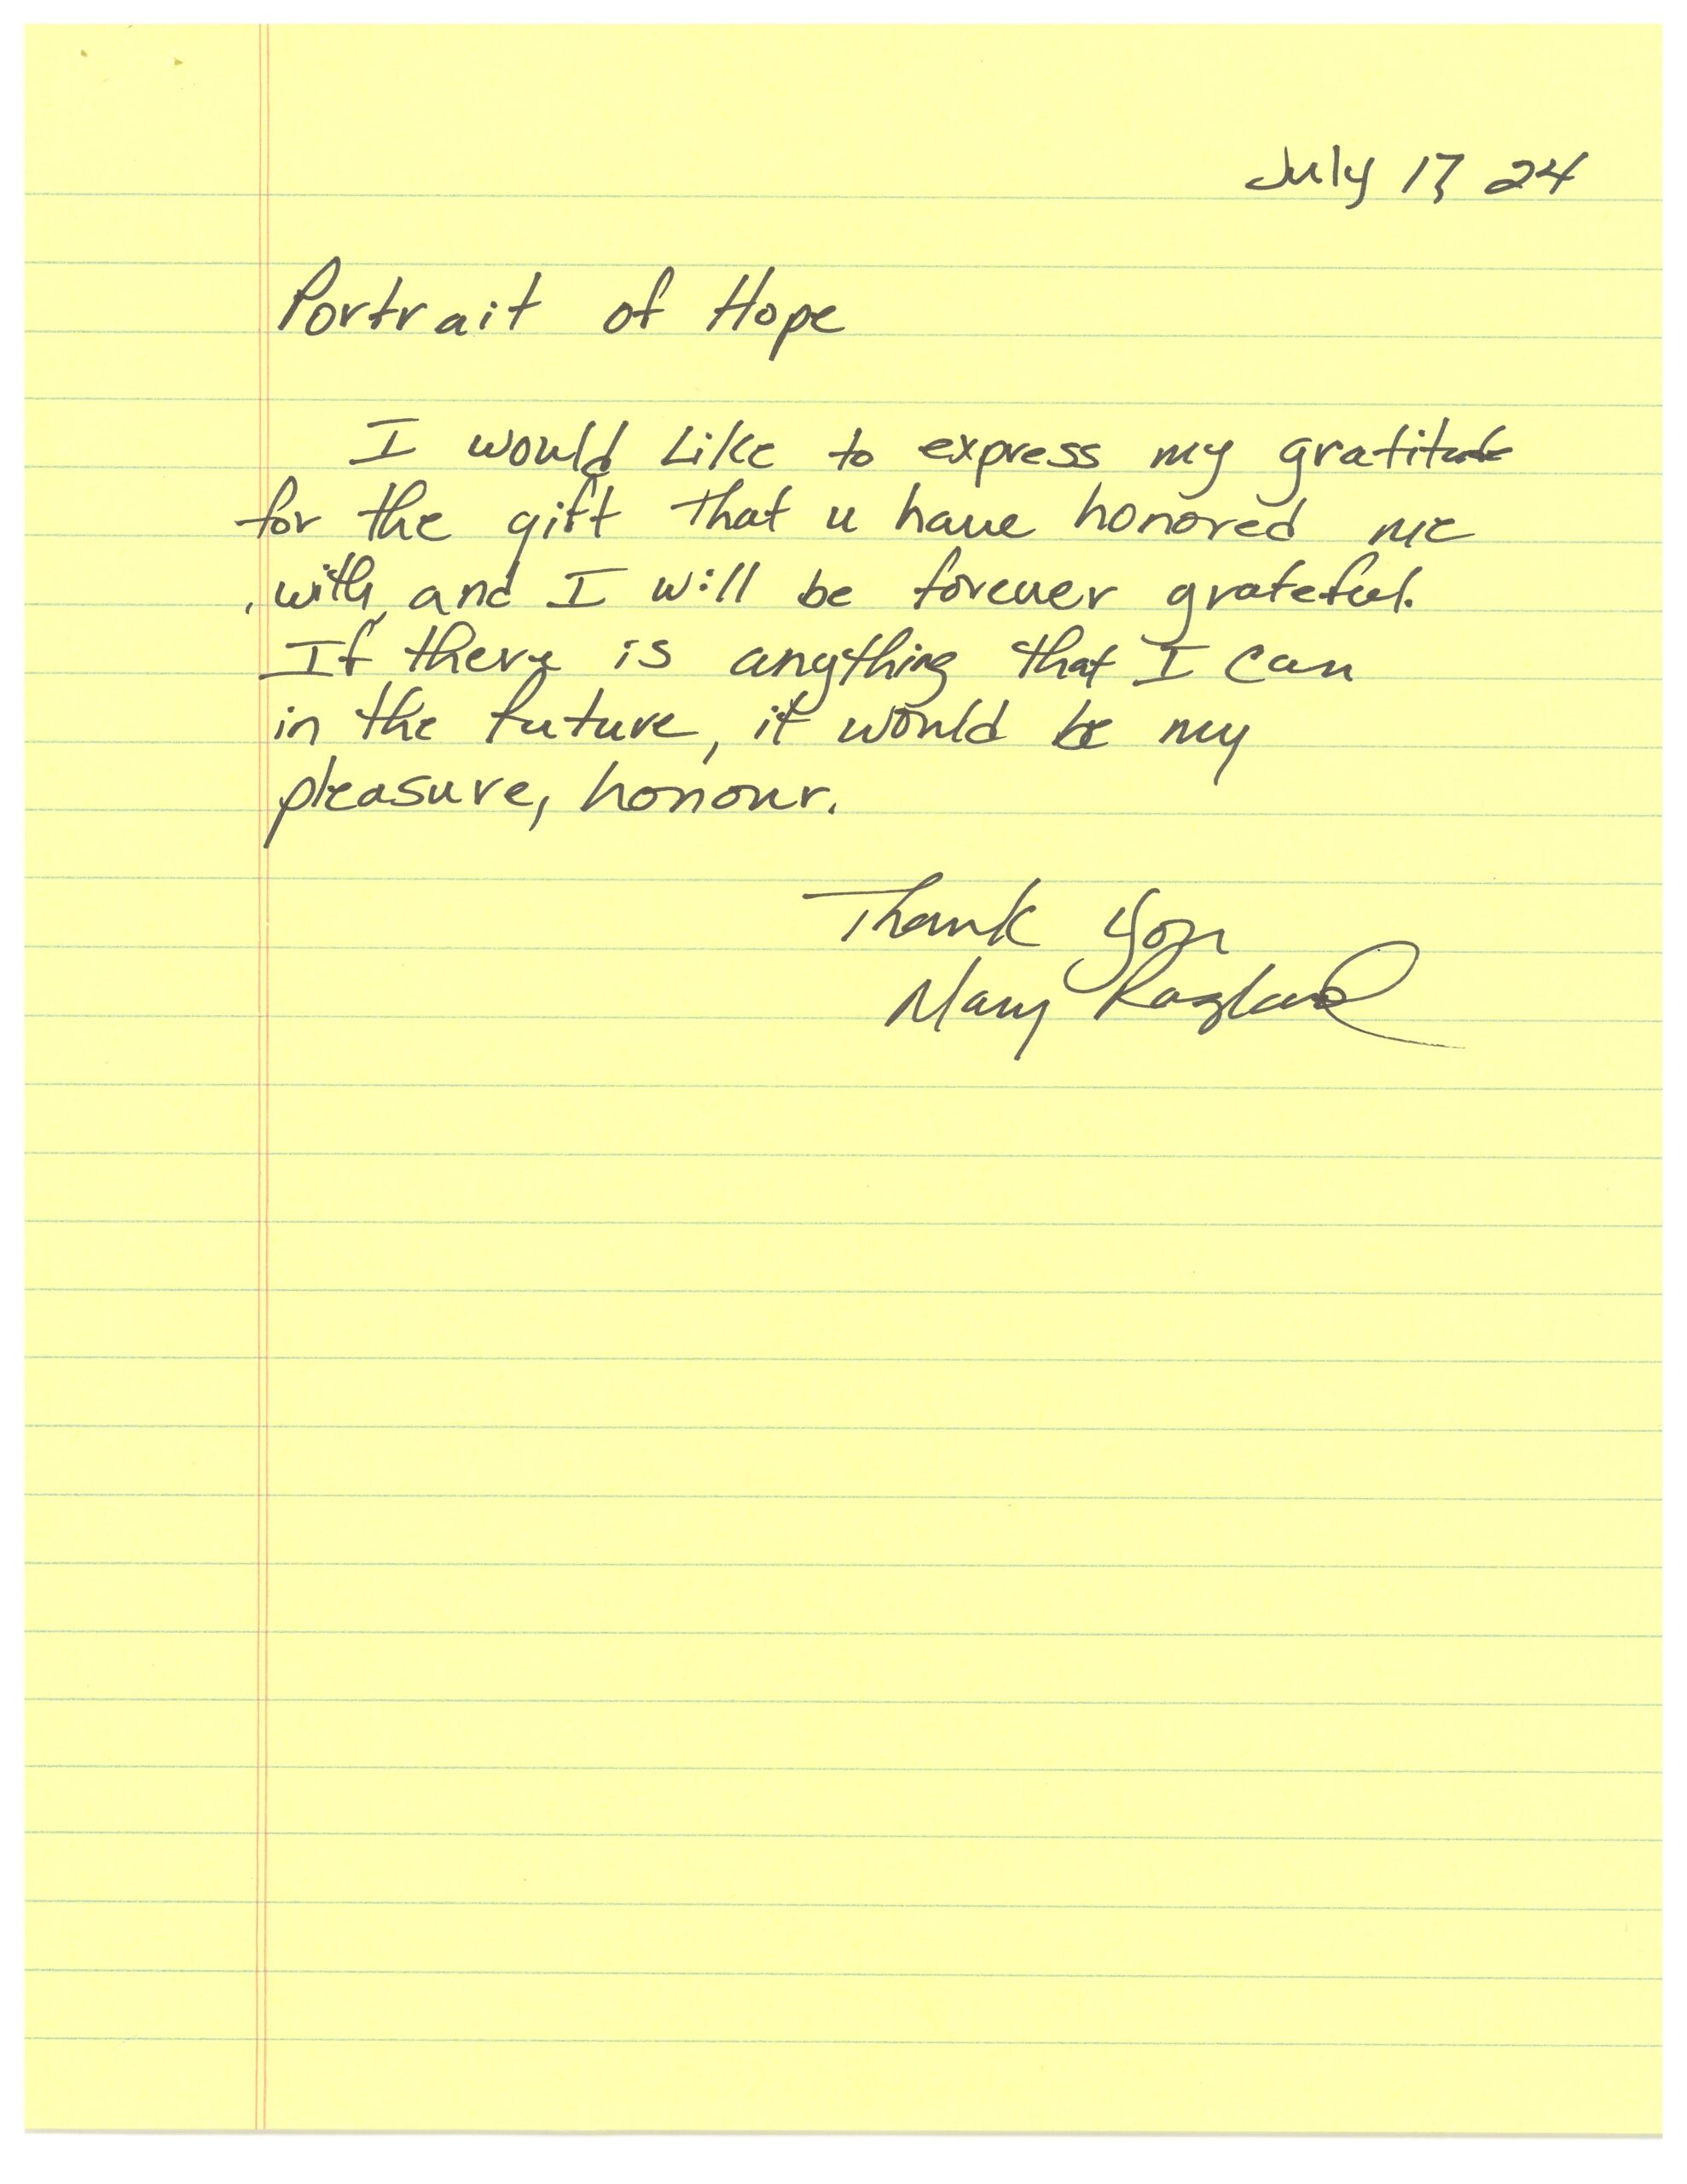 July 17, 24
Portrait of Hope
I would like to express my gratitude
for the gift that u have honored me
with, and I will be forever grateful.
If there is anything that I can
in the future, it would be my
pleasure, honour.
Thank you
Mary Ragland